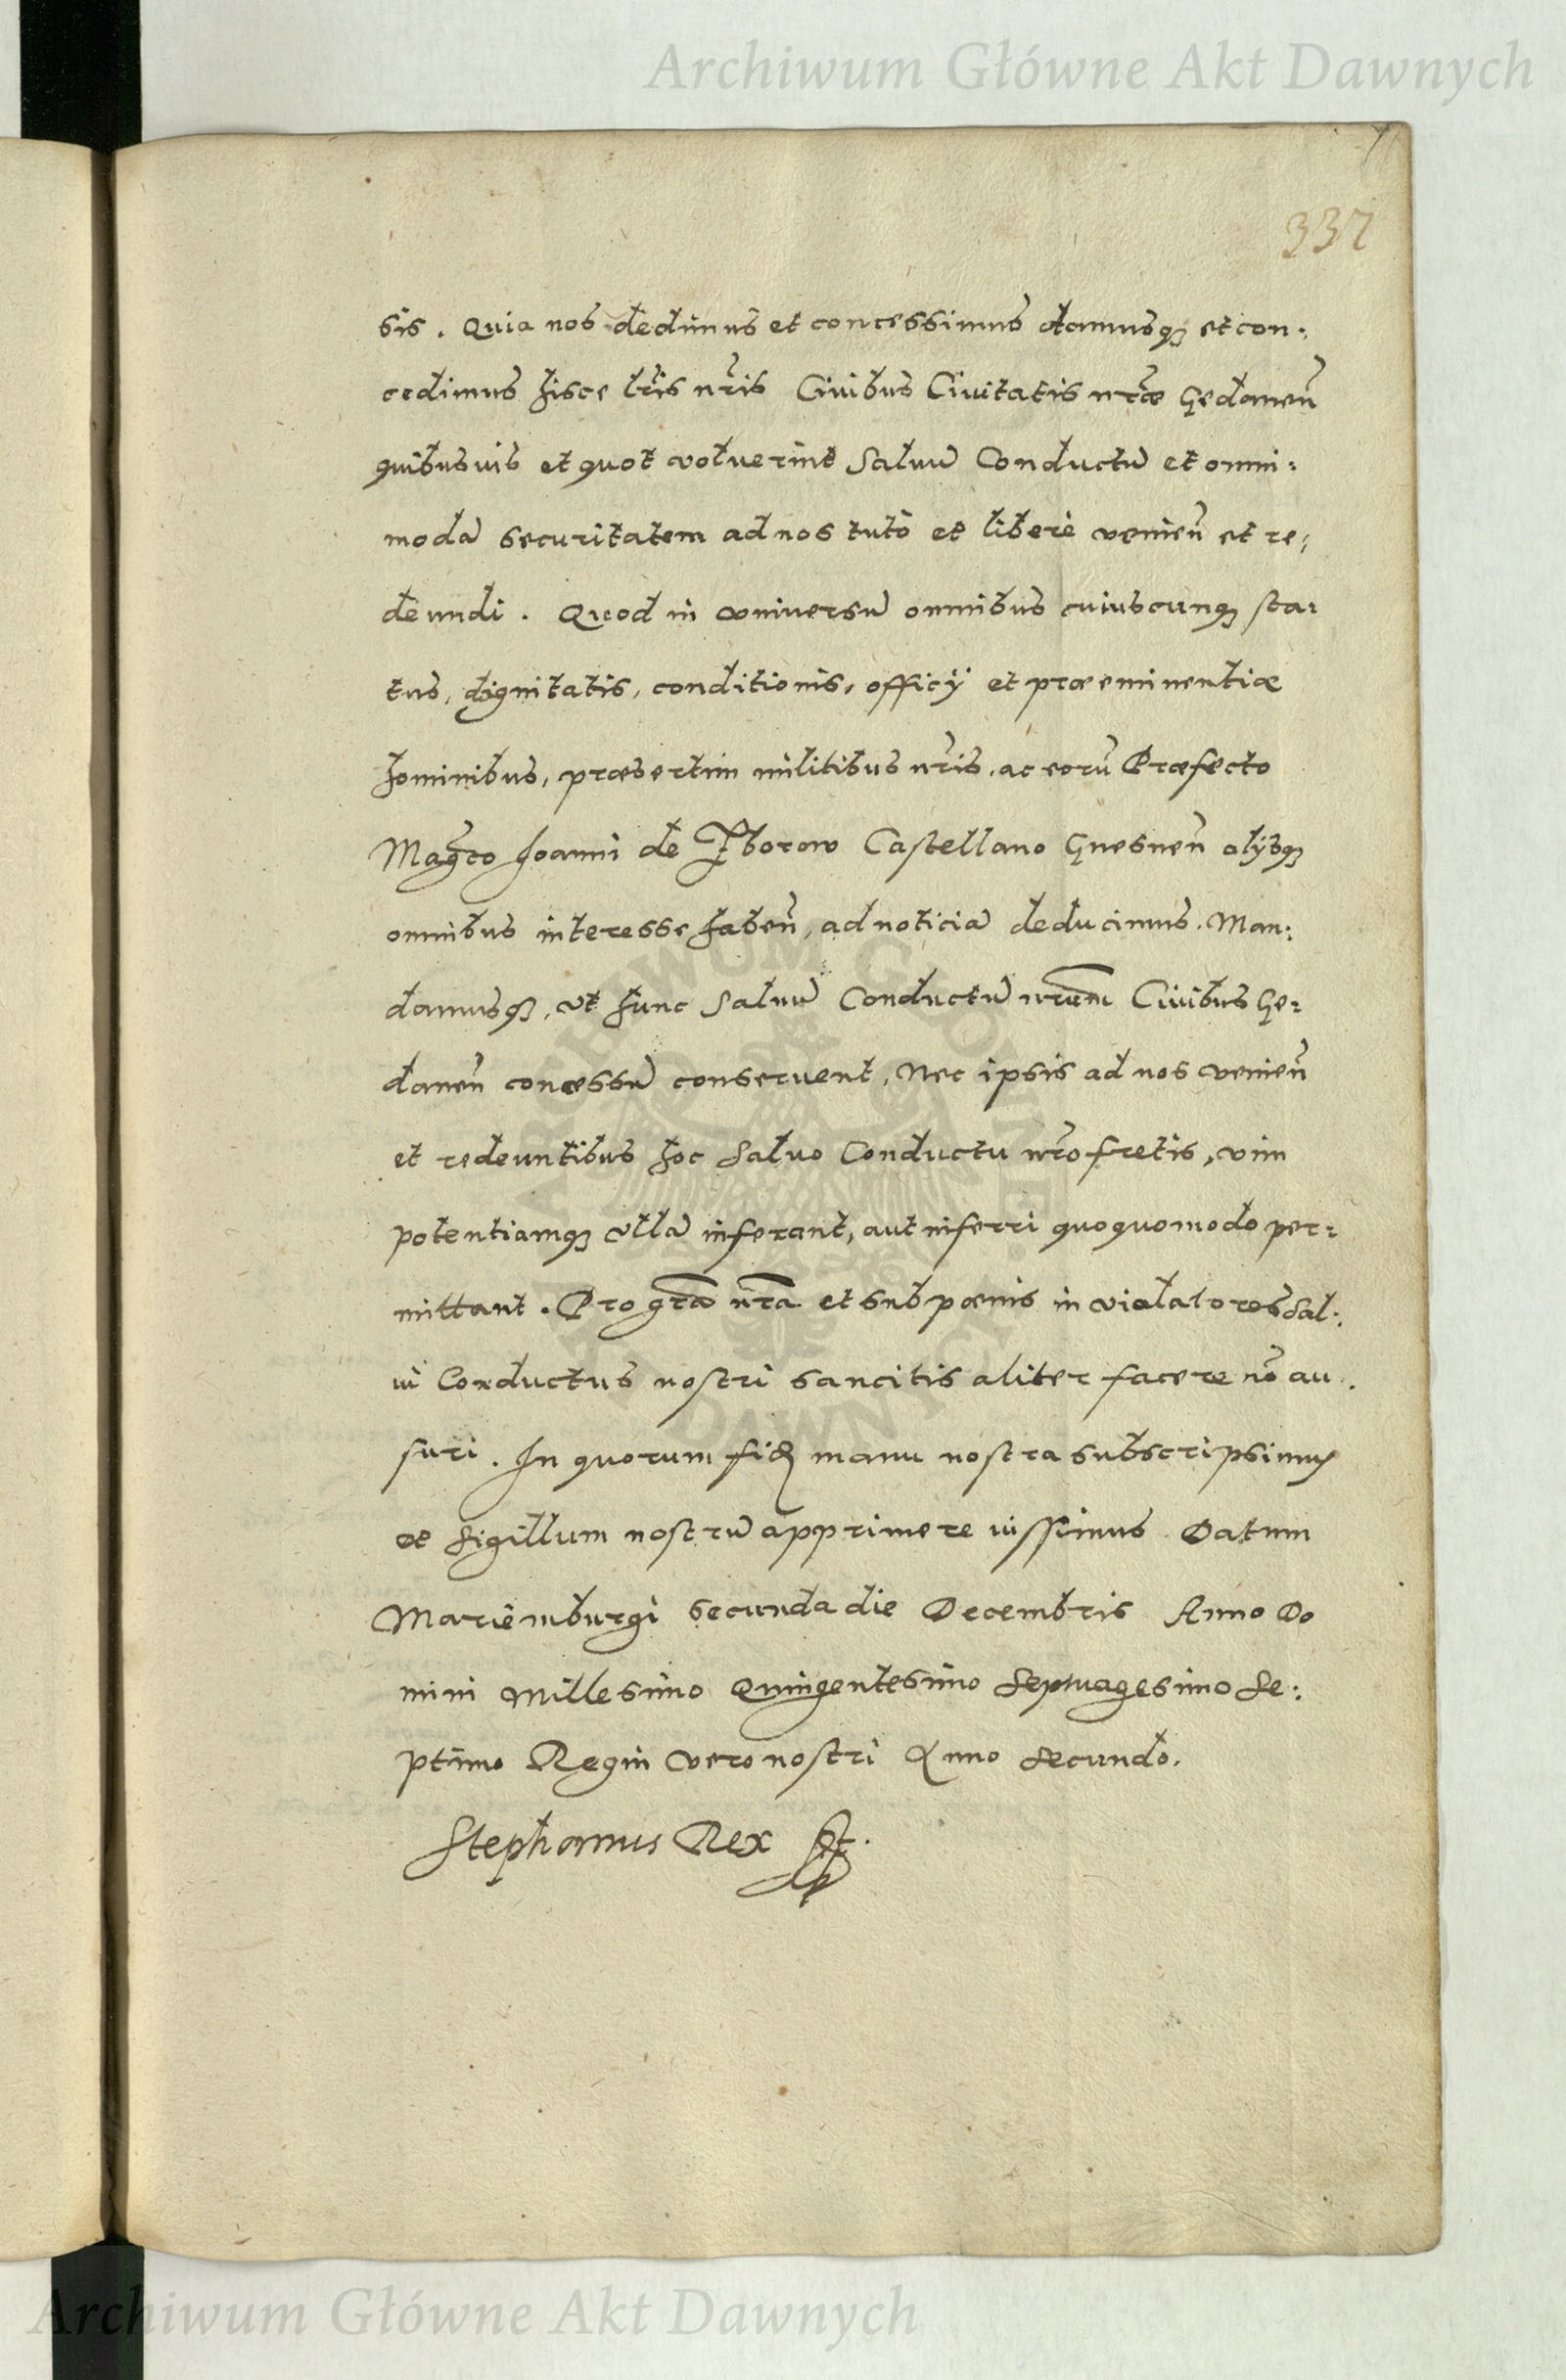 Archiwum Główne Akt Dawnych
337
sis. Quia nos dedimus et concessimus damusq₃ et con:
cedimus hisce lr̃is nr̃is Ciuibus Ciuitatis nr̃æ Gedaneñ
quibusuis et quot voluerint Saluũ Conductũ et omni:
modã securitatem ad nos tutò et liberè venieñ et re:
deundi. Quod in vniversũ omnibus cuiuscunq₃ sta:
tus, dignitatis, conditionis, officÿ et præeminentiæ
hominibus, præsertim militibus nr̃is, ac eorũ Præfecto
Mag̃co Joanni de Zborow Castellano Gnesneñ alÿsq₃
omnibus interesse habeñ, ad noticiã deducimus. Man:
damusq₃, vt hunc Saluũ Conductũ nr̃um Ciuibus Ge:
daneñ concessũ conseruent, Nec ipsis ad nos venieñ
et redeuntibus hoc Saluo Conductu nr̃o fretis, vim
potentiamq₃ vllã inferant, aut inferri quoquomodo per:
mittant. Pro gr̃a nr̃a et sub pœnis in violatores Sal:
ui Conductus nostri sancitis aliter facere nõ au.
suri. In quorum fidẽ manu nostra subscripsimus
et Sigillum nostrũ apprimere iussimus. Datum
Mariemburgi secunda die Decembris Anno Do
mini Millesimo Quingentesimo Septuagesimo Se:
ptimo Regni vero nostri Anno Secundo.
Stephanus Rex
Archiwum Główne Akt Dawnych